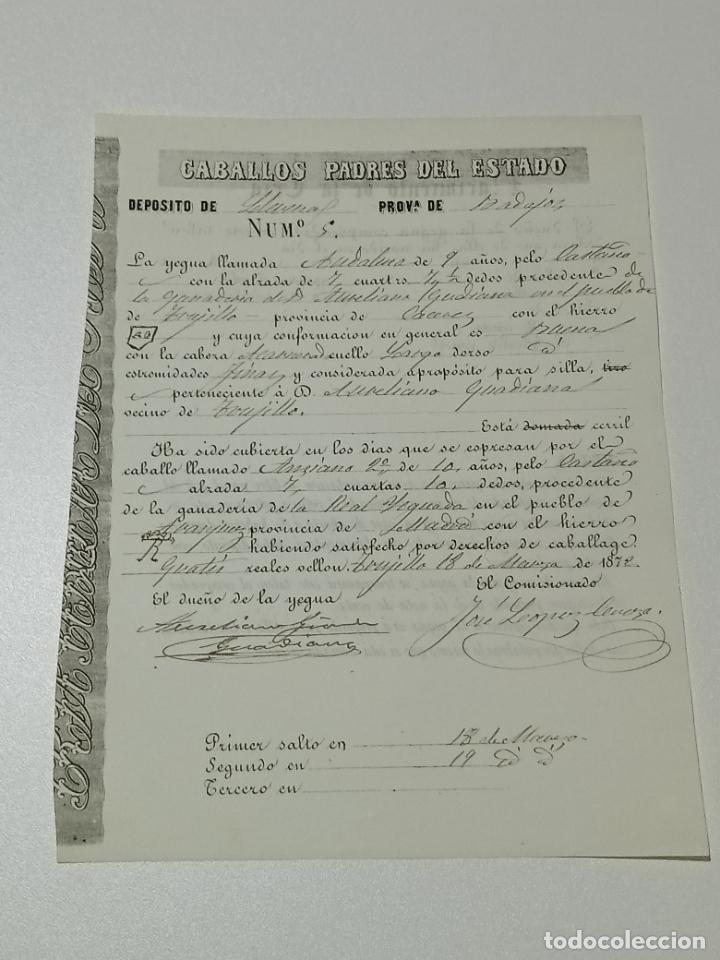 CABALLOS PADRES DEL ESTADO
DEPOSITO DE Llerena PROVª DE Badajoz
NUMº 5.
La yegua llamada Andaluza de 9 años, pelo Castaño
con la alzada de 7 cuartas 7 ½ dedos procedente de
la ganaderia de D. Aureliano Guadiana en el pueblo de
de Trujillo provincia de Caceres con el hierro
AG y cuya conformacion en general es Buena
con la cabeza cuello Largo dorso
estremidades finas y considerada apropósito para silla, tiro
perteneciente á D. Aureliano Guadiana
vecino de Trujillo.
Está domada cerril
Ha sido cubierta en los dias que se espresan por el
caballo llamado Anziano 2º de 10, años, pelo Castaño
alzada 7, cuartas 10, dedos, procedente
de la ganadería de la Real Yeguada en el pueblo de
Aranjuez provincia de Madrid con el hierro
habiendo satisfecho por derechos de caballage.
Gratis reales vellon. Trujillo 18 de Marzo de 1872.
El Comisionado
El dueño de la yegua
José Lopez
Aureliano
Guadiana
Primer salto en 18 de Marzo
Segundo en 19 id id
Tercero en
todocoleccion
todocoleccion.net